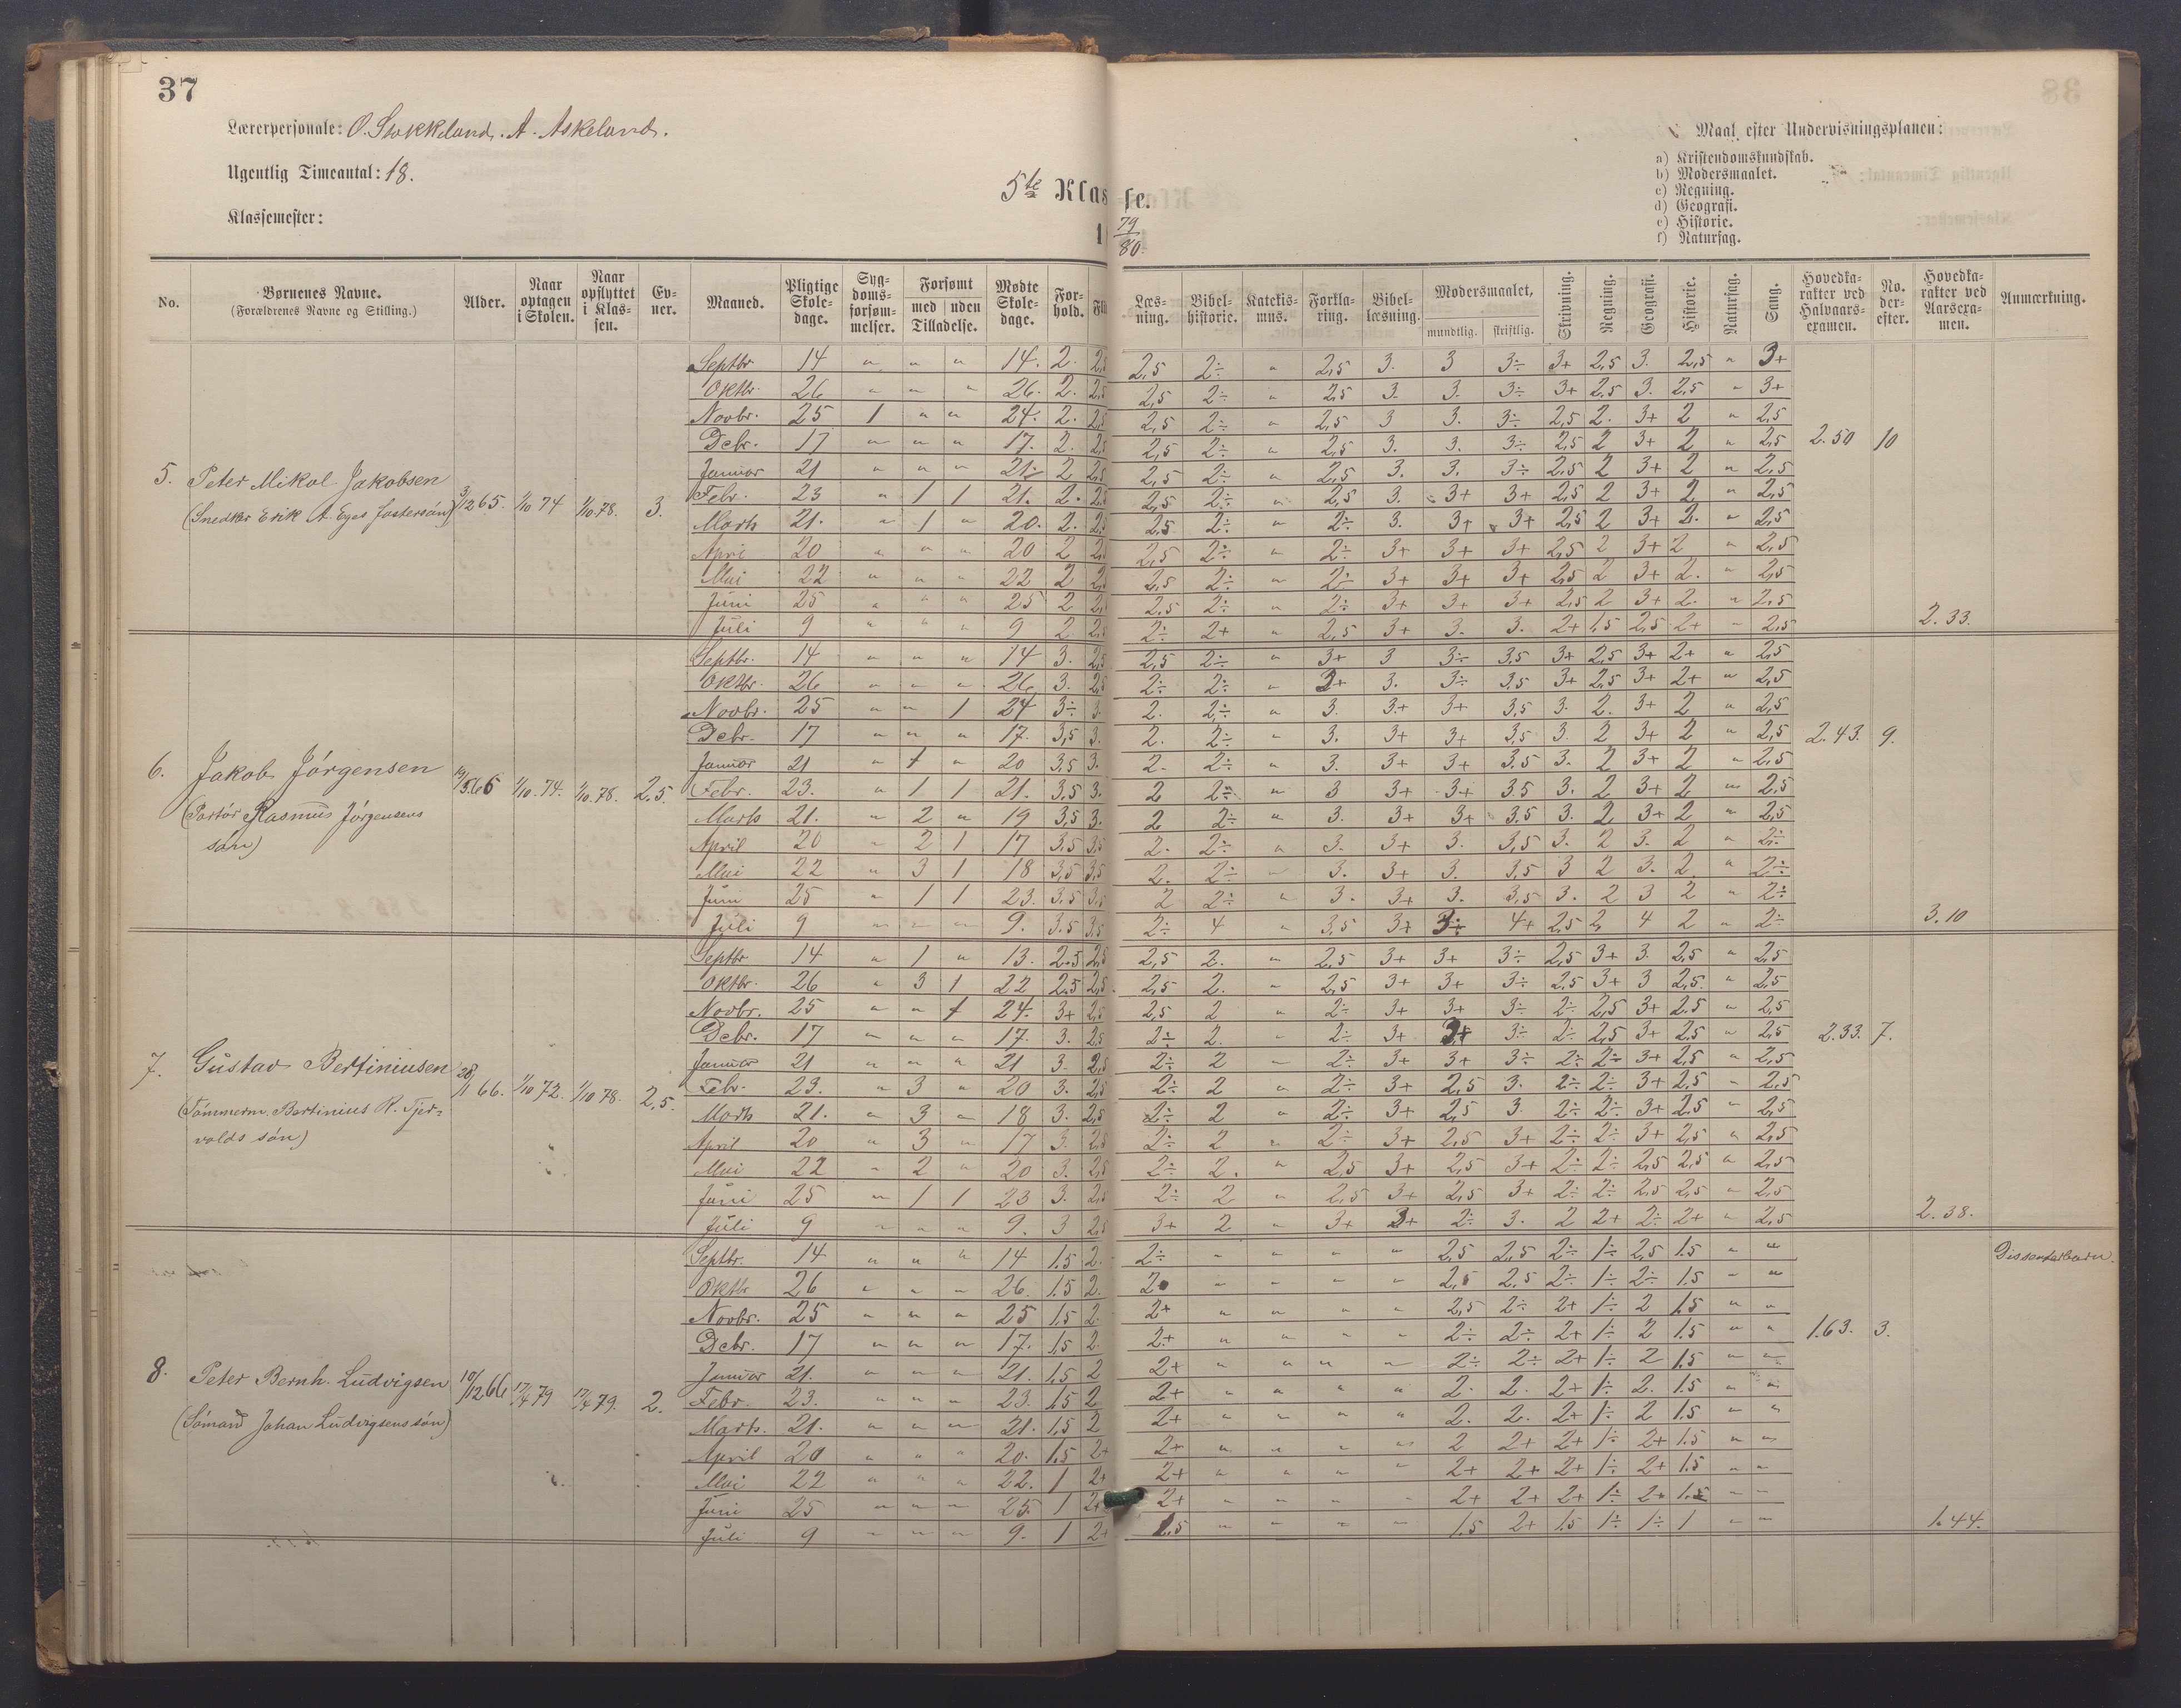 37
Lærerpersonale: O. Stokkeland. A. Askeland.
Ugentlig Timeantal: 18.
Klassemester:
5te Klasse.
79
80.
Maal efter Undervisningsplanen:
a) Kristendomskundskab.
b) Modersmaalet.
c) Regning.
d) Geografi.
e) Historie.
f) Naturfag.
No. Børnenes Navne. (Forældrenes Navne og Stilling.) Alder. Naar optagen i Skolen. Naar opflyttet i Klassen. Evner. Maaned. Pligtige Skoledage. Sygdomsforsømmelser. Forsømt med uden Tilladelse. Mødte Skoledage. Forhold. Læsning. Bibelhistorie. Katekismus. Forklaring. Bibellæsning. Modersmaalet, mundtlig. skriftlig. Skrivning. Regning. Geografi. Historie. Naturfag. Sang. Hovedkarakter ved Halvaarsexamen. No. derefter. Hovedkarakter ved Aarsexamen. Anmærkning.
Septbr 14 " " " 14. 2. 2,5 2,5 2÷ " 2,5 3. 3 3÷ 3+ 2,5 3. 2,5 " 3+
Oktbr. 26 " " " 26. 2. 2,5 2,5 2÷ " 2,5 3. 3. 3÷ 3+ 2,5 3. 2,5 " 3+
Novbr. 25 1 " " 24. 2. 2,5 2,5 2÷ " 2,5 3 3. 3÷ 2,5 2. 3+ 2 " 2,5
Debr. 17 " " " 17. 2. 2,5 2,5 2÷ " 2,5 3. 3. 3÷ 2,5 2 3+ 2 " 2,5 2.50 10
Januar 21 " " " 21. 2 2,5 2,5 2÷ " 2,5 3. 3. 3÷ 2,5 2 3+ 2 " 2,5
5. Peter Mikal Jakobsen 3/12 65. 1/10 74 1/10.78. 3.
(Snedker Erik A. Eges fostersøn)
Febr. 23 " 1 1 21. 2. 2,5 2,5 2÷ " 2,5 3. 3+ 3+ 2,5 2 3+ 2 " 2,5
Marts 21. " 1 " 20. 2. 2,5 2,5 2÷ " 2÷ 3. 3+ 3+ 2,5 2 3+ 2. " 2,5
April 20 " " " 20 2 2,5 2,5 2÷ " 2÷ 3+ 3+ 3+ 2,5 2 3+ 2 " 2,5
Mai 22 " " " 22 2 2,5 2,5 2÷ " 2÷ 3+ 3+ 3+ 2,5 2 3+ 2. " 2,5
Juni 25 " " " 25 2 2,5 2,5 2÷ " 2÷ 3+ 3+ 3+ 2,5 2 3+ 2. " 2,5
Juli 9 " " " 9 2 2,5 2÷ 2+ " 2,5 3+ 3. 3. 2+ 1,5 2,5 2+ " 2,5 2.33.
Septbr. 14 " " " 14 3. 2,5 2,5 2÷ " 3+ 3 3÷ 3,5 3+ 2,5 3+ 2+ " 2,5
Oktbr. 26 " " " 26 3. 2,5 2÷ 2÷ " 3+ 3. 3÷ 3,5 3+ 2,5 3+ 2+ " 2,5
Novbr. 25 " " 1 24 3÷ 3. 2. 2÷ " 3. 3+ 3+ 3,5 3. 2. 3+ 2 " 2,5
Debr. 17 " " " 17. 3,5 3. 2. 2÷ " 3. 3+ 3+ 3,5 3. 2 3+ 2 " 2,5 2.43. 9.
Januar 21 " 1 " 20 3,5 3. 2. 2÷ " 3. 3+ 3+ 3,5 3. 2 3+ 2 " 2,5
6. Jakob Jørgensen 66 1/10.74. 1/10.78. 2,5.
(Rasmus Jørgensens
søn)
Febr. 23. " 1 1 21. 3,5 3. 2 2÷ " 3 3+ 3+ 3,5 3. 2 3+ 2 " 2,5
Marts 21. " 2 " 19 3,5 3. 2 2÷ " 3. 3+ 3+ 3,5 3. 2 3+ 2 " 2,5
April 20 " 2 1 17 3,5 3,5 2. 2÷ " 3. 3+ 3. 3,5 3. 2 3. 2 " 2÷
Mai 22 " 3 1 18 3,5 3,5 2. 2÷ " 3. 3+ 3. 3,5 3 2 3. 2. " 2÷
Juni 25 " 1 1 23. 3,5 3,5 2 2÷ " 3. 3+ 3. 3,5 3. 2 3 2 " 2÷
Juli 9 " " " 9. 3,5 3,5 2÷ 4 " 3,5 3+ 3÷ 4+ 2,5 2 4 2 " 2÷ 3.10
Septbr 14 " 1 " 13. 2,5 2,5 2,5 2. " 2,5 3+ 3+ 3÷ 2,5 3+ 3. 2,5 " 2,5
Oktbr. 26 " 3 1 22 2,5 2,5 2,5 2. " 2,5 3+ 3+ 3÷ 2,5 3+ 3 2,5 " 2,5
Novbr. 25 " " 1 24. 3+ 2,5 2,5 2 " 2÷ 3+ 3+ 3÷ 2÷ 2,5 3+ 2,5 " 2,5
Debr. 17 " " " 17. 3. 2,5 2÷ 2. " 2÷ 3+ 3+ 3÷ 2÷ 2,5 3+ 2,5 " 2,5 2.33. 7.
Januar 21 " " " 21 3. 2,5 2÷ 2 " 2÷ 3+ 3+ 3÷ 2÷ 2÷ 3+ 2,5 " 2,5
7. Gustav Bertiniusen 28/1 66. 1/10 72. 1/10 78. 2,5.
(Tømmerm. Bertinius R. Tjervolds søn)
Febr. 23. " 3 " 20 3. 2,5 2÷ 2 " 2÷ 3+ 2,5 3. 2÷ 2÷ 3+ 2,5 " 2,5
Marts 21. " 3 " 18 3. 2,5 2÷ 2 " 2÷ 3+ 2,5 3. 2÷ 2÷ 3+ 2,5 " 2,5
April 20 " 3 " 17 3. 2,5 2÷ 2 " 2÷ 3+ 2,5 3+ 2÷ 2÷ 3+ 2,5 " 2,5
Mai 22 " 2 " 20 3. 2,5 2÷ 2. " 2,5 3+ 2,5 3+ 2÷ 2÷ 2,5 2,5 " 2,5
Juni 25 " 1 1 23 3. 2,5 2÷ 2 " 2,5 3+ 2,5 3+ 2÷ 2÷ 2,5 2,5 " 2,5
Juli 9 " " " 9. 3 2,5 3+ 2 " 3+ 3+ 2÷ 3. 2 2+ 2÷ 2+ " 2,5 2.38.
Septbr. 14 " " " 14 1.5 2. 2÷ " " " " 2,5 2,5 2÷ 1÷ 2,5 1.5 " " Dissenterbarn.
Oktbr 26 " " " 26. 1.5 2. 2 " " " " 2,5 2.5 2÷ 1÷ 2÷ 1.5 " "
Novbr. 25 " " " 25 1.5 2. 2+ " " " " 2,5 2÷ 2+ 1÷ 2 1.5 " "
Debr. 17 " " " 17. 1,5 2. 2+ " " " " 2÷ 2÷ 2+ 1÷ 2 1.5 " " 1.63. 3.
Januar 21. " " " 21. 1,5 2 2+ " " " " 2÷ 2÷ 2+ 1÷ 2 1.5 " "
8. Peter Bernh. Ludvigsen 10/12 66 17/4 79 17/4 79. 2.
(Sømand Johan Ludvigsens søn)
Febr. 23. " " " 23. 1,5 2 2+ " " " " 2. 2. 2+ 1÷ 2. 1.5 " "
Marts. 21. " " " 21. 1,5 2 2+ " " " " 2. 2. 2+ 1÷ 2 1.5 " "
April 20 " " " 20. 1.5 2+ 2+ " " " " 2 2+ 2+ 1÷ 2+ 1.5 " "
Mai 22 " " " 22. 1 2+ 2+ " " " " 2+ 2+ 2+ 1÷ 2+ 1.5 " "
Juni 25 " " " 25. 1 2+ 2+ " " " " 2+ 2+ 2+ 1÷ 2+ 1.5 " "
Juli 9 " " " 9. 1 2+ 1.5 " " " " 1.5 2+ 1.5 1÷ 1÷ 1 " " 1.44.